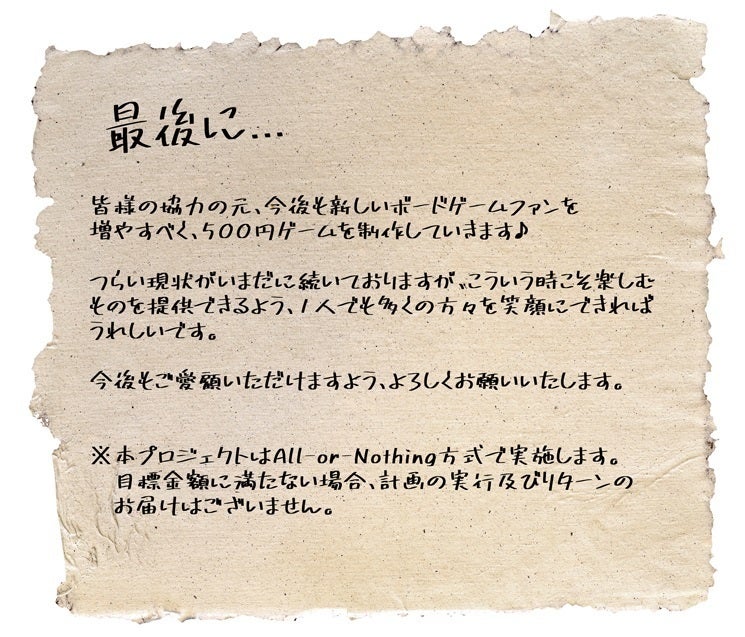 最後に...
皆様の協力の元、今後も新しいボードゲームファンを
増やすべく、500円ゲームを制作していきます♪
つらい現状がいまだに続いておりますが、こういう時こそ楽しむ
ものを提供できるよう、1人でも多くの方々を笑顔にできれば
うれしいです。
今後もご愛顧いただけますよう、よろしくお願いいたします。
※本プロジェクトはAll-or-Nothing方式で実施します。
目標金額に満たない場合、計画の実行及びリターンの
お届けはございません。